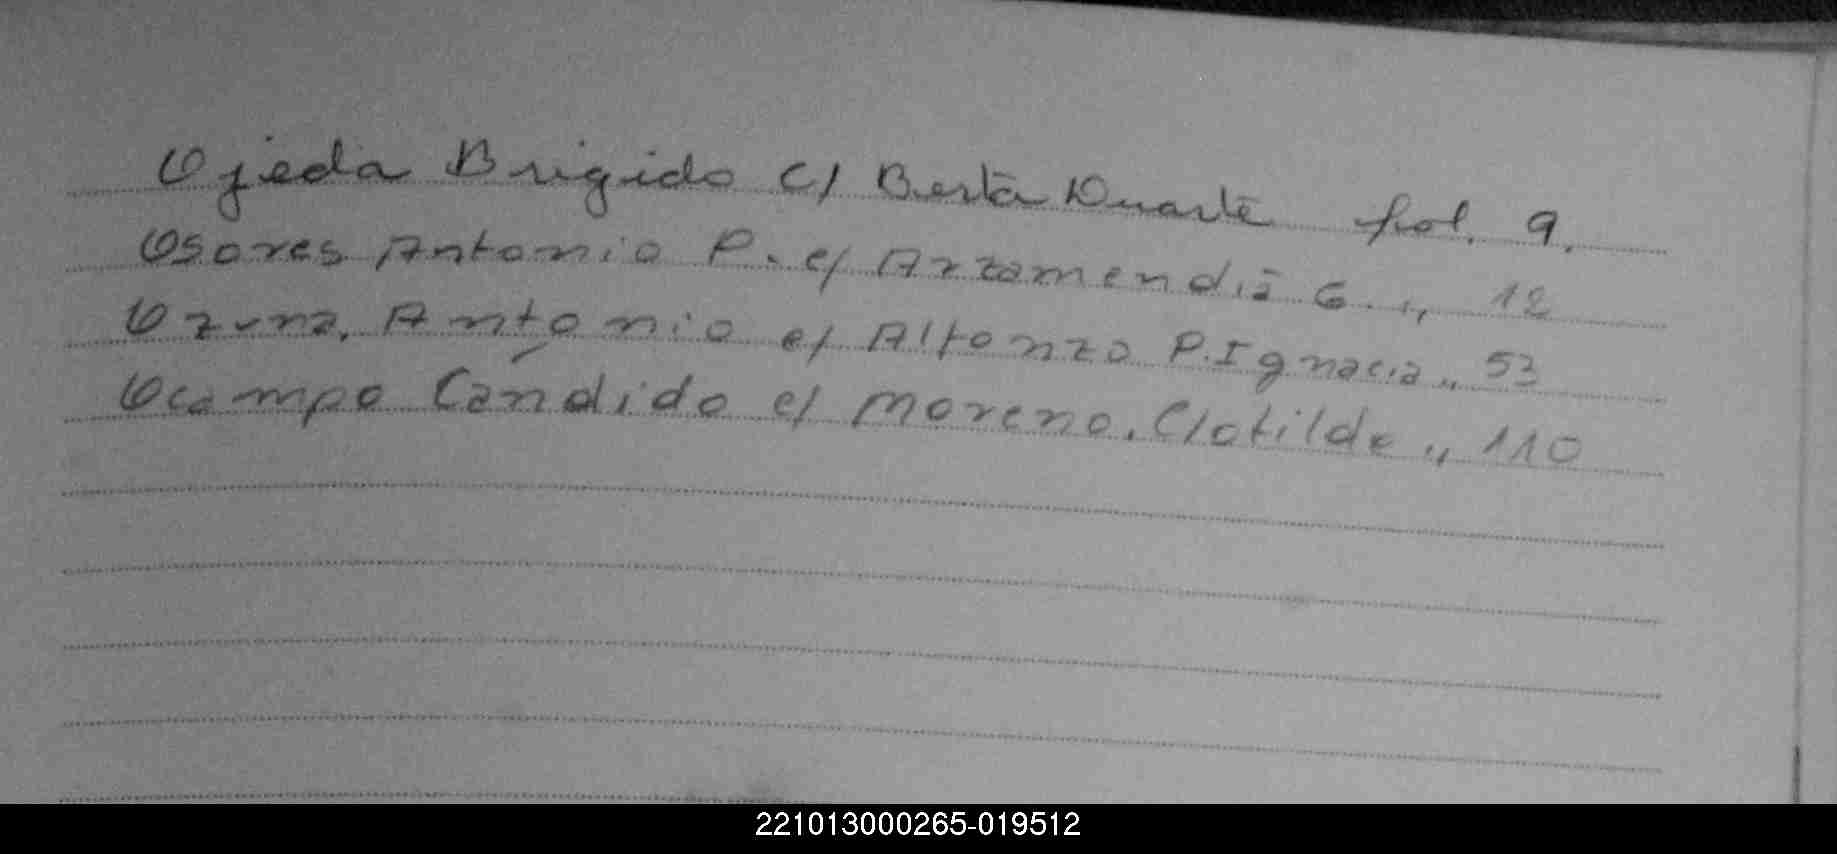 Ojeda Brigido c/ Berta Duarte fol. 9.
Osores Antonio P. c/ Arzamendia G. ,, 12
Ozuna, Antonio c/ Alfonzo P. Ignacia ,, 53
Ocampo Cándido c/ Moreno, Clotilde ,, 110
221013000265-019512